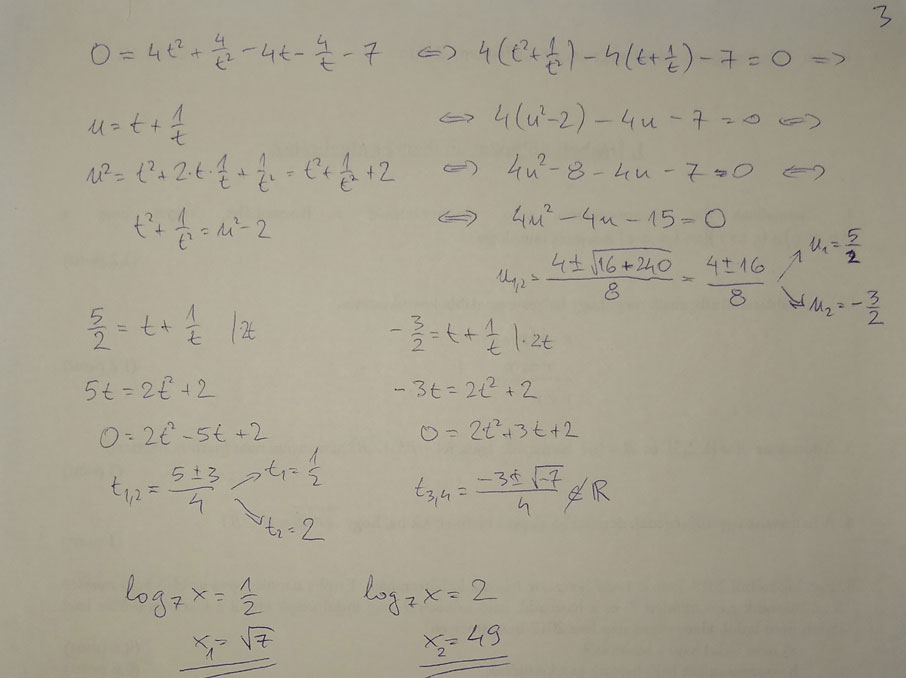 3
0 = 4t² + 4/t² - 4t - 4/t - 7 ⇔ 4(t² + 1/t²) - 4(t + 1/t) - 7 = 0 ⇒
u = t + 1/t ⇔ 4(u² - 2) - 4u - 7 = 0 ⇔
u² = t² + 2·t·1/t + 1/t² = t² + 1/t² + 2 ⇔ 4u² - 8 - 4u - 7 = 0 ⇔
t² + 1/t² = u² - 2 ⇔ 4u² - 4u - 15 = 0
u₁,₂ = (4 ± √(16 + 240))/8 = (4 ± 16)/8 ↗ u₁ = 5/2 ↘ u₂ = -3/2
5/2 = t + 1/t |2t
5t = 2t² + 2
0 = 2t² - 5t + 2
t₁,₂ = (5 ± 3)/4 ↗ t₁ = 1/2 ↘ t₂ = 2
-3/2 = t + 1/t |·2t
-3t = 2t² + 2
0 = 2t² + 3t + 2
t₃,₄ = (-3 ± √-7)/4 ∉ ℝ
log₇ x = 1/2
x₁ = √7
log₇ x = 2
x₂ = 49